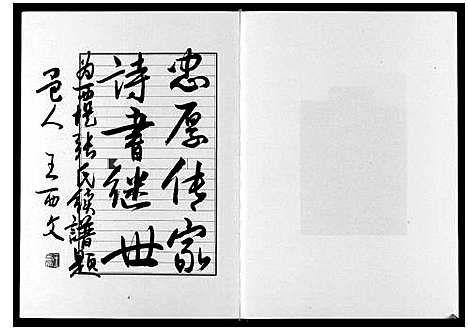 忠厚传家
詩書继世
为西堤张氏族譜题
邑人 王西文